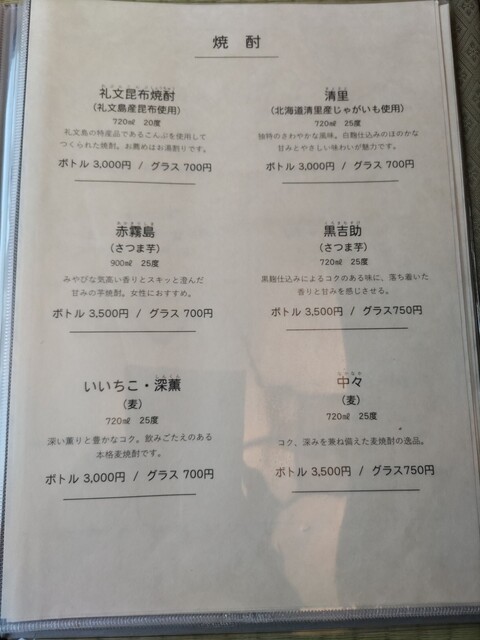 焼酎
礼文昆布焼酎
(礼文島産昆布使用)
720㎖ 20度
礼文島の特産品であるこんぶを使用して
つくられた焼酎。お薦めはお湯割りです。
ボトル 3,000円 / グラス 700円
清里
(北海道清里産じゃがいも使用)
720㎖ 25度
独特のさわやかな風味。白麹仕込みのほのかな
甘みとやさしい味わいが魅力です。
ボトル 3,000円 / グラス 700円
赤霧島
(さつま芋)
900㎖ 25度
みやびな気高い香りとスキッと澄んだ
甘みの芋焼酎。女性におすすめ。
ボトル 3,500円 / グラス 700円
黒吉助
(さつま芋)
720㎖ 25度
黒麹仕込みによるコクのある味に、落ち着いた
香りと甘みを感じさせる。
ボトル 3,500円 / グラス750円
いいちこ・深薫
(麦)
720㎖ 25度
深い薫りと豊かなコク。飲みごたえのある
本格麦焼酎です。
ボトル 3,000円 / グラス 700円
中々
(麦)
720㎖ 25度
コク、深みを兼ね備えた麦焼酎の逸品。
ボトル 3,500円 / グラス750円